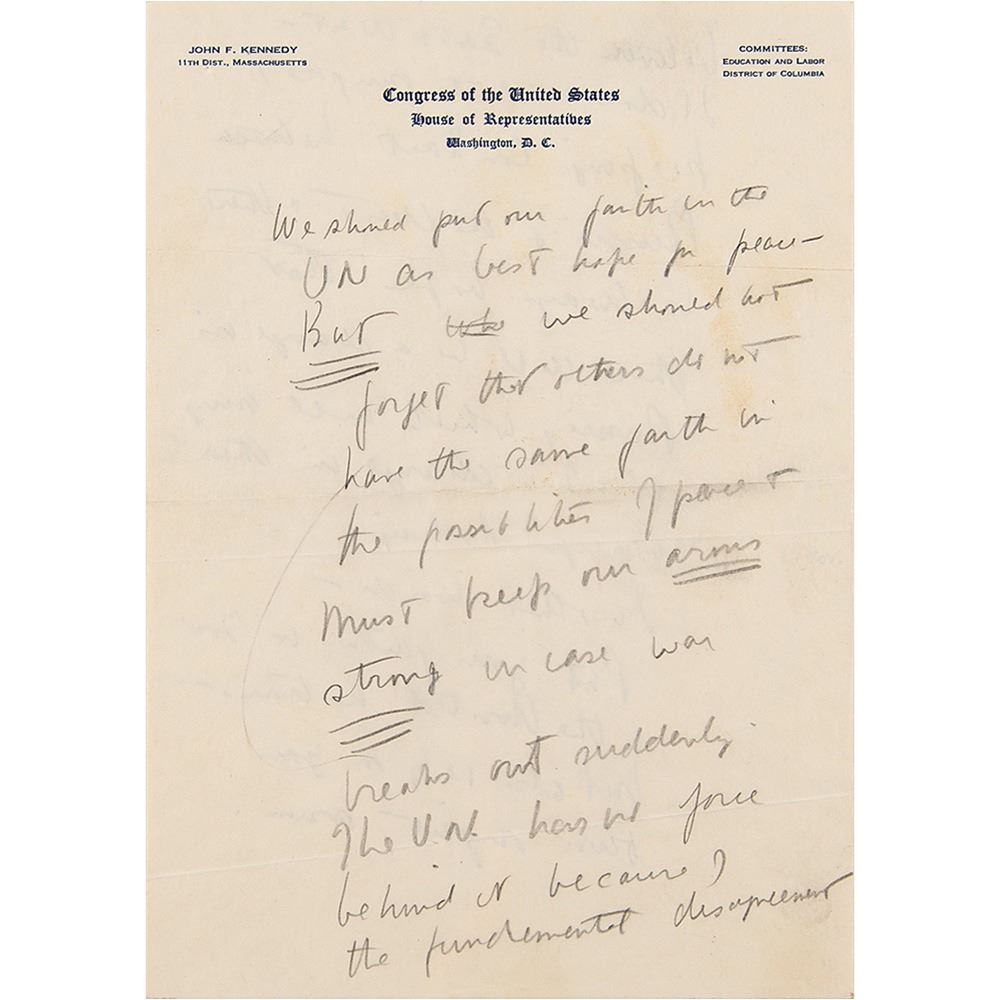 JOHN F. KENNEDY
11TH DIST., MASSACHUSETTS
COMMITTEES:
EDUCATION AND LABOR
DISTRICT OF COLUMBIA
Congress of the United States
House of Representatives
Washington, D. C.
We should put our faith in the
UN as best hope for peace—
But we should not
forget that others do not
have the same faith in
the possibilities of peace +
Must keep our arms
strong in case war
breaks out suddenly.
The U.N. has no force
behind it because of
the fundemental disagreement